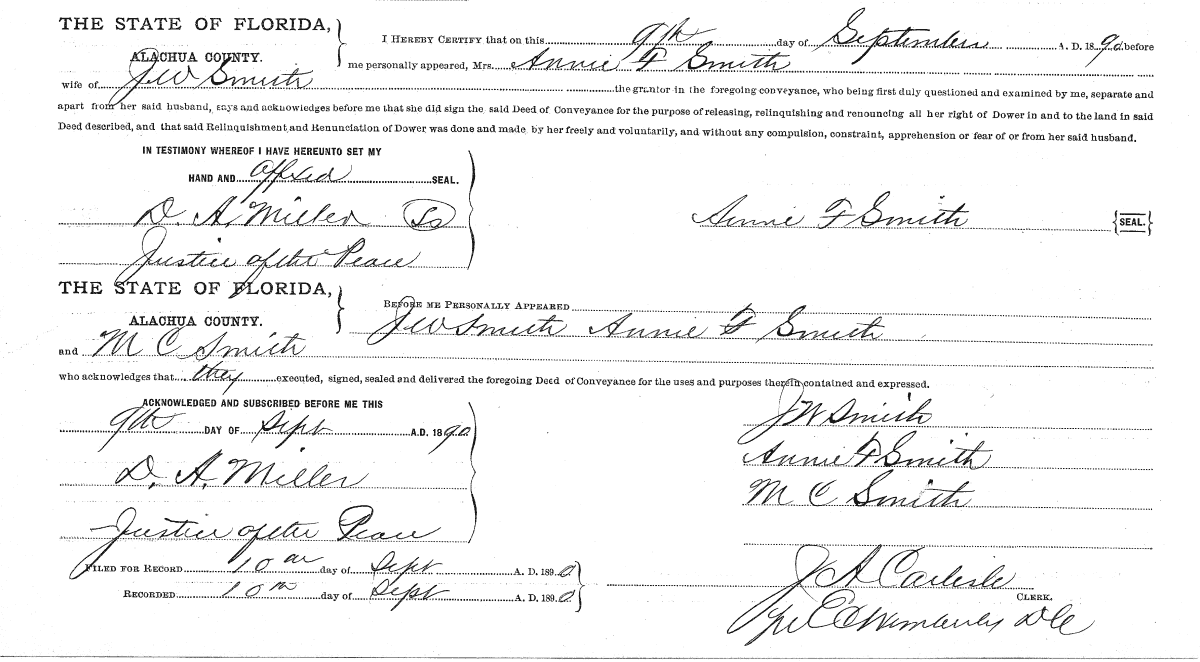 THE STATE OF FLORIDA,
ALACHUA COUNTY.
I HEREBY CERTIFY that on this 9th day of September A. D. 1890 before
me personally appeared, Mrs. Annie F Smith
wife of J W Smith the grantor in the foregoing conveyance, who being first duly questioned and examined by me, separate and
apart from her said husband, says and acknowledges before me that she did sign the said Deed of Conveyance for the purpose of releasing, relinquishing and renouncing all her right of Dower in and to the land in said
Deed described, and that said Relinquishment and Renunciation of Dower was done and made by her freely and voluntarily, and without any compulsion, constraint, apprehension or fear of or from her said husband.
IN TESTIMONY WHEREOF I HAVE HEREUNTO SET MY
HAND AND affixed SEAL.
D. A. Miller
Annie F Smith {SEAL.}
Justice of the Peace
THE STATE OF FLORIDA,
ALACHUA COUNTY.
BEFORE ME PERSONALLY APPEARED
J W Smith Annie F Smith
and M C Smith
who acknowledges that they executed, signed, sealed and delivered the foregoing Deed of Conveyance for the uses and purposes therein contained and expressed.
ACKNOWLEDGED AND SUBSCRIBED BEFORE ME THIS
9th DAY OF Sept A.D. 1890
D. A. Miller
Justice of the Peace
J W Smith
Annie F Smith
M C Smith
FILED FOR RECORD 10th day of Sept A. D. 1890
RECORDED 10th day of Sept A. D. 1890
J A Carlisle
CLERK.
DC